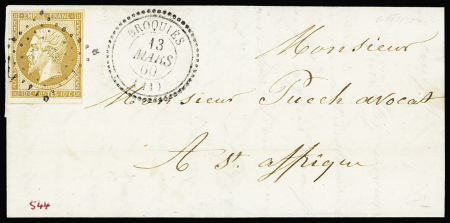 EMPIRE FRANC
BROQUIÈS
13
MARS
60
(11)
Monsieur
Monsieur Puech avocat
A St. affrique
544